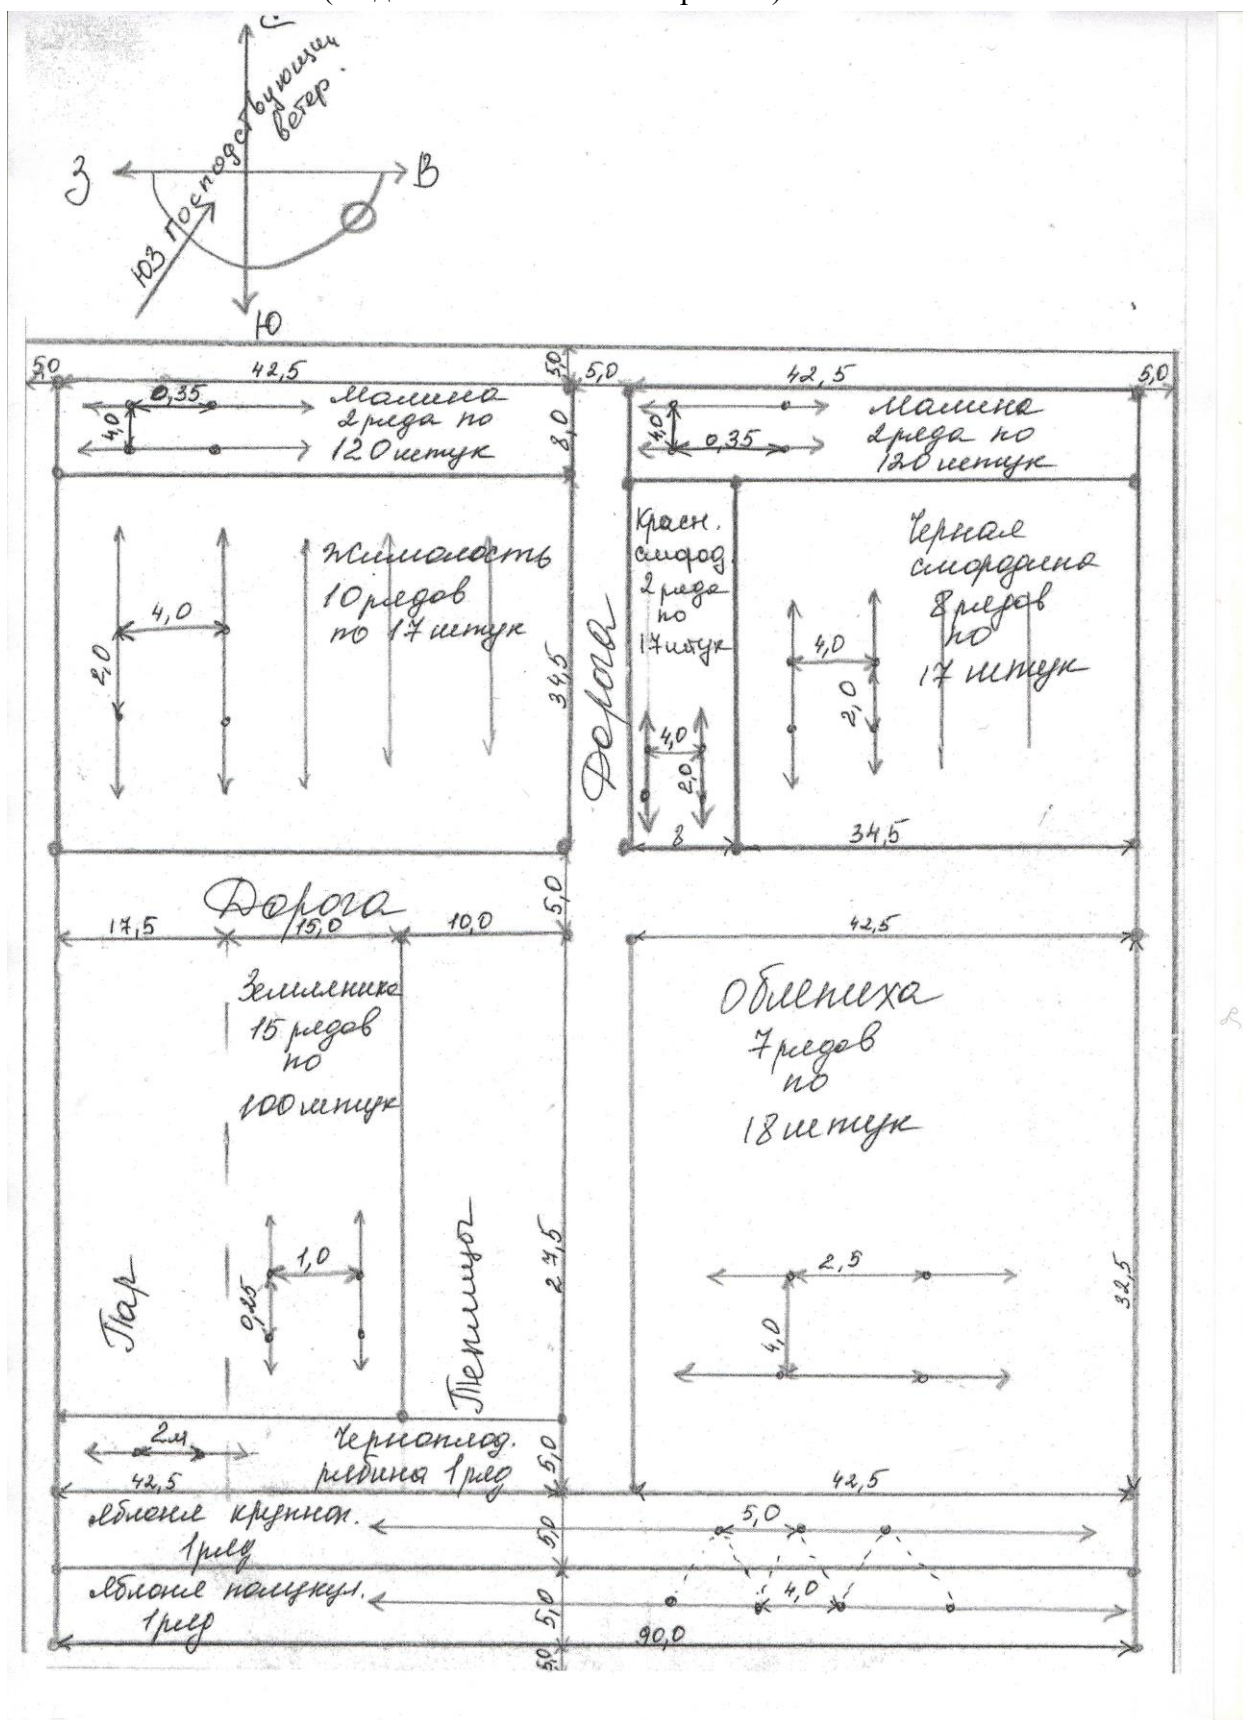 С
ЮЗ господствующий
ветер.
З
В
Ю
5,0
42,5
5,0
5,0
42,5
5,0
0,35
4,0
Малина
2 ряда по
120 штук
8,0
4,0
0,35
Малина
2 ряда по
120 штук
Жимолость
10 рядов
по 17 штук
4,0
2,0
34,5
Дорога
Красн.
смород.
2 ряда
по
17 штук
4,0
2,0
8
Черная
смородина
8 рядов
по
17 штук
4,0
2,0
34,5
Дорога
5,0
17,5
15,0
10,0
42,5
Земляника
15 рядов
по
100 штук
1,0
0,25
Пар
Теплицы
27,5
Облепиха
7 рядов
по
18 штук
2,5
4,0
32,5
2м
Черноплод.
рябина 1 ряд
5,0
42,5
42,5
яблоня крупноп.
1 ряд
5,0
5,0
яблоня полукул.
1 ряд
5,0
4,0
90,0
5,0